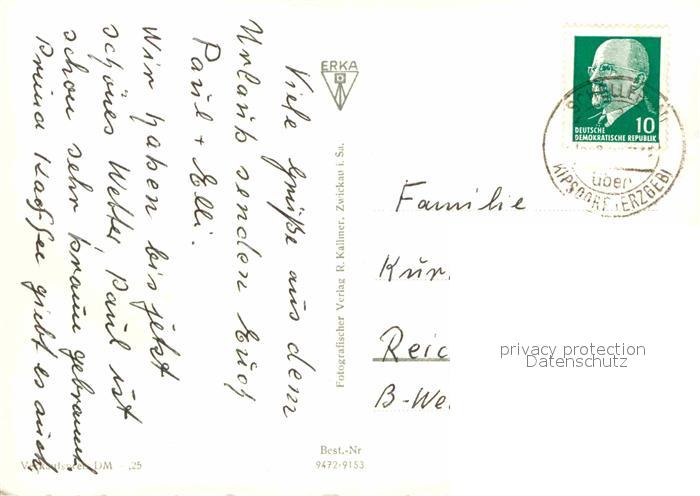 Viele Grüße aus dem
Urlaub senden Euch
Paul + Elli.
Wir haben bis jetzt
schönes Wetter, Paul ist
schon sehr braun gebrannt.
Prima Kaffee giebt es auch
ERKA
Fotografischer Verlag R. Kallmer, Zwickau i. Sa.
Best.-Nr
9472-9153
DM -,25
DEUTSCHE
DEMOKRATISCHE REPUBLIK
10
über
KIPSDORF (ERZGEB)
Familie
Kur.
Reic
B-We.
privacy protection
Datenschutz